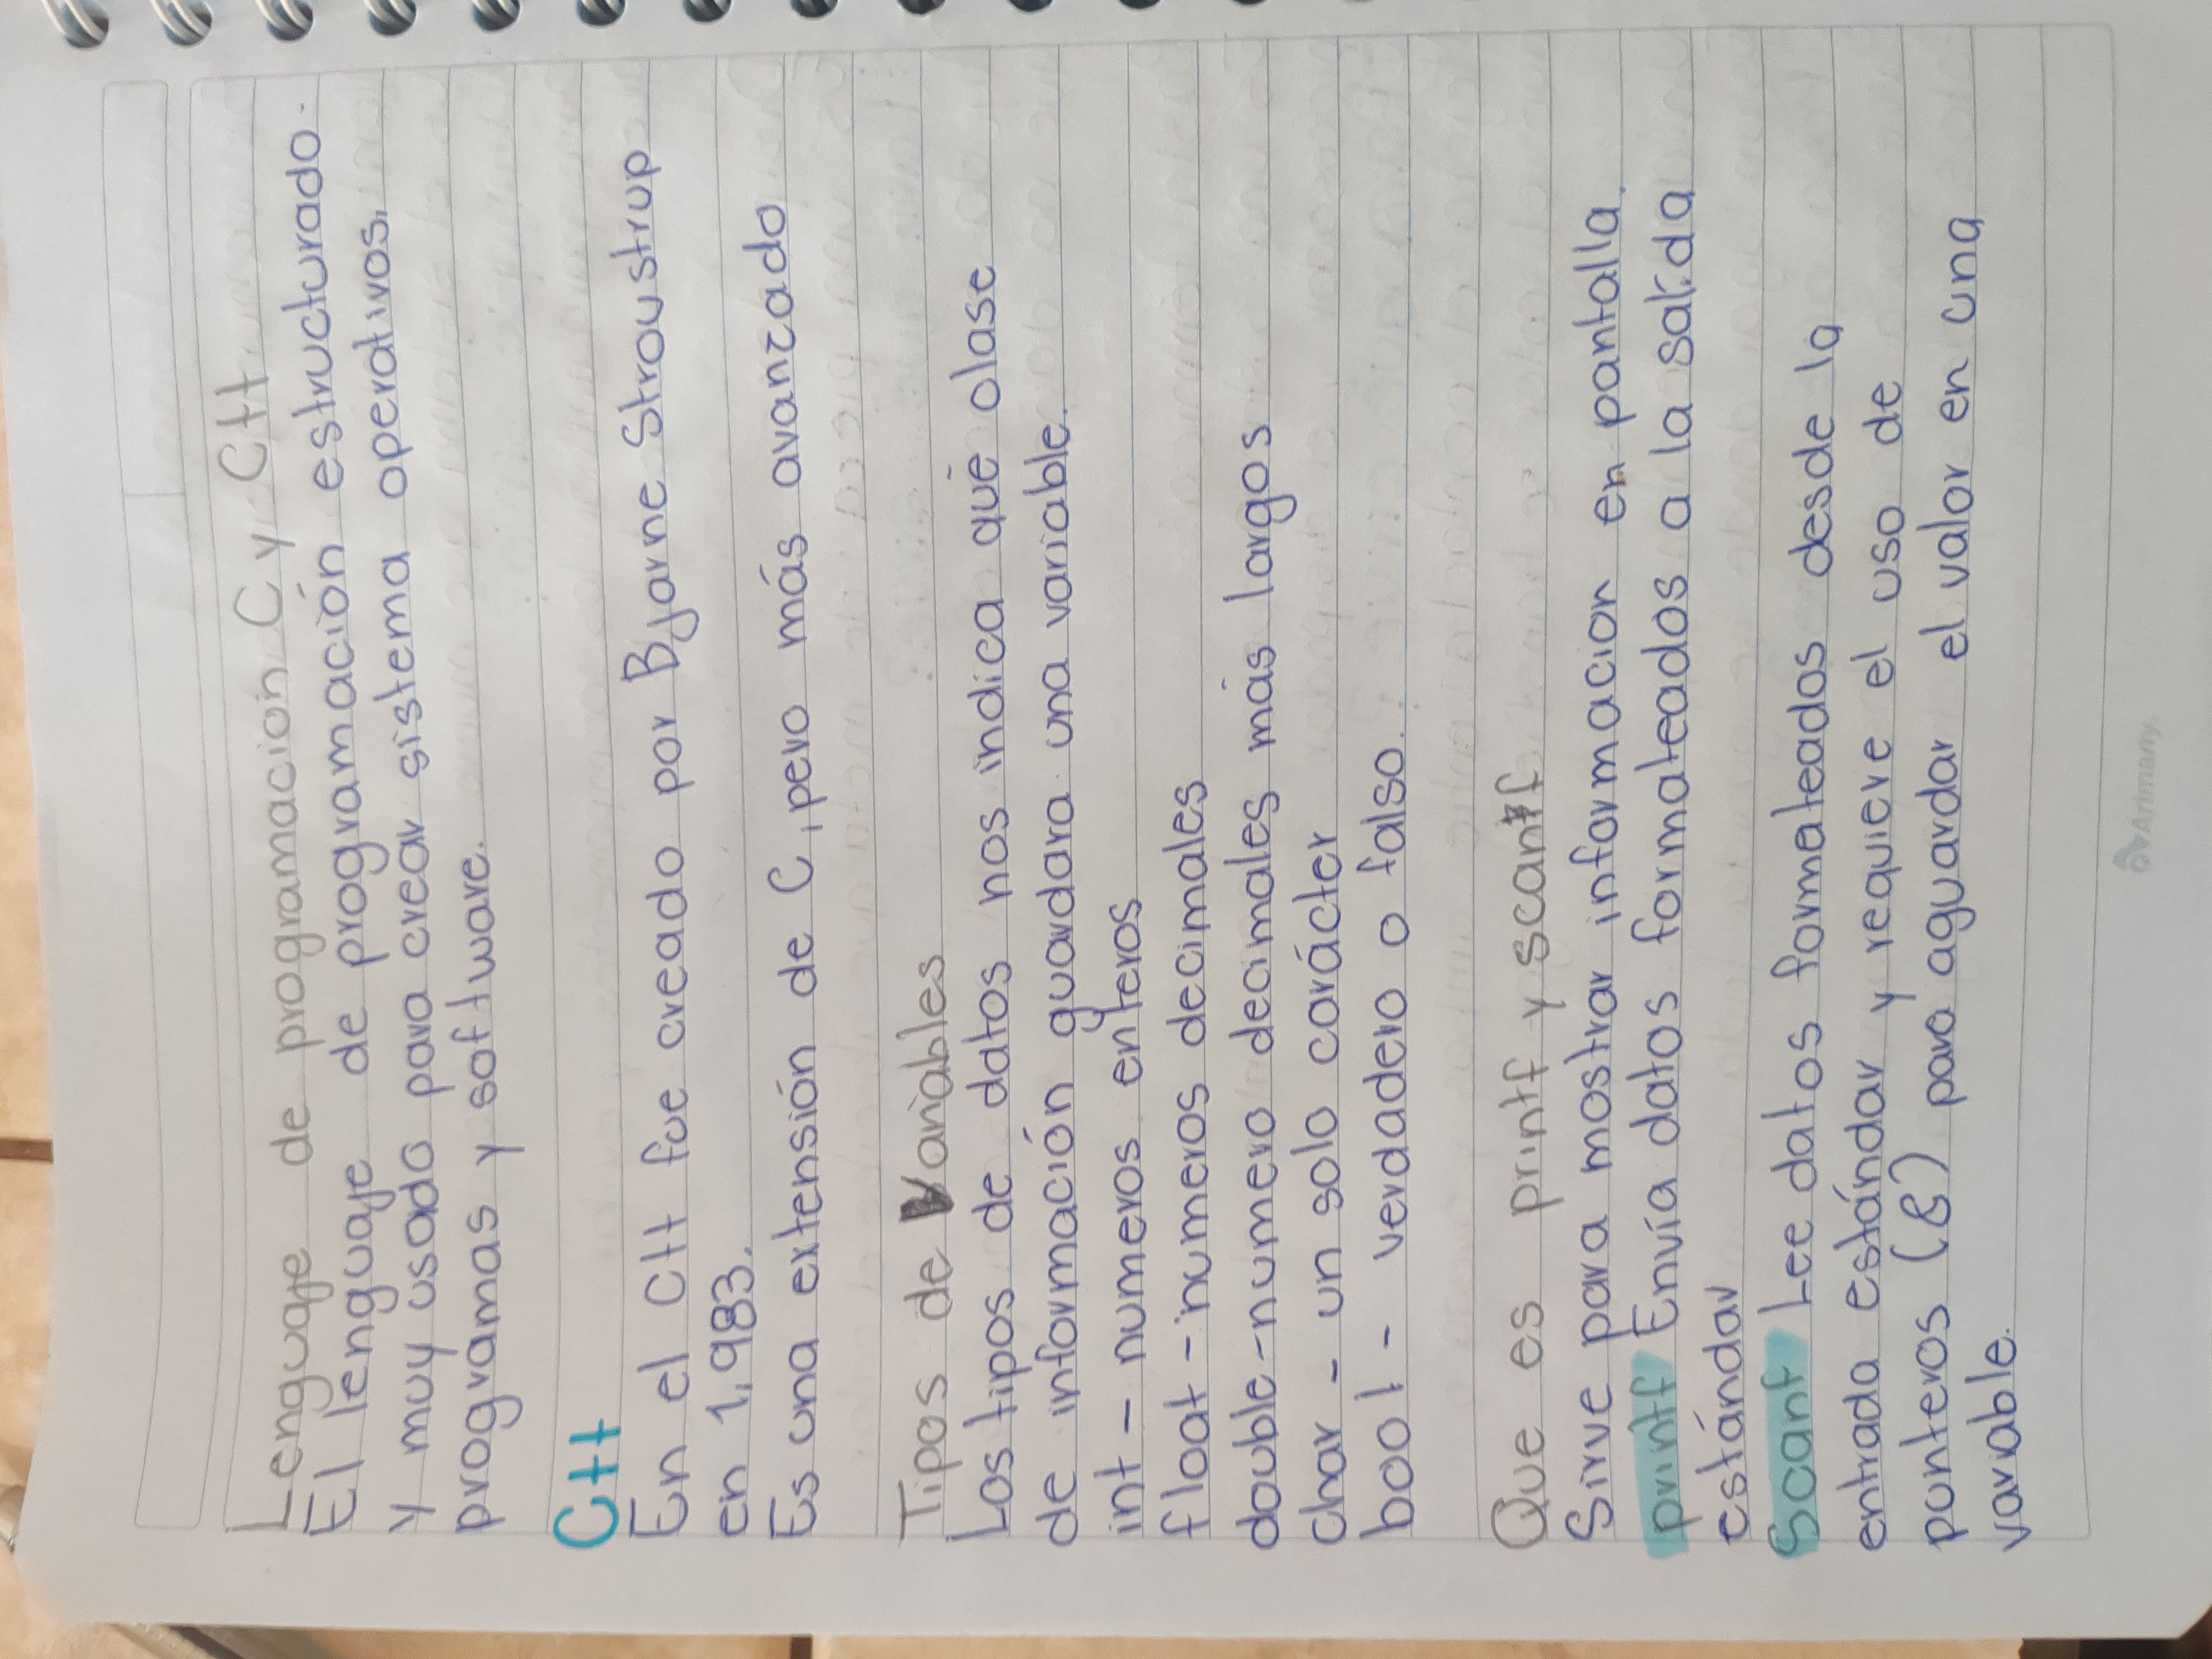 Lenguaje de programacion C y C++
El lenguaje de programación estructurado.
y muy usado para crear sistema operativos,
programas y software.
C++
En el C++ fue creado por Bjarne Stroustrup
en 1,983.
Es una extensión de C, pero más avanzado
Tipos de Variables
Los tipos de datos nos indica que clase
de información guardara una variable.
int - numeros enteros
float - numeros decimales
double - numero decimales más largos
char - un solo carácter
bool - verdadero o falso.
Que es printf y scanf
Sirve para mostrar informacion en pantalla.
printf Envía datos formateados a la salida
estándar
Scanf Lee datos formateados desde la
entrada estándar y requiere el uso de
punteros (&) para aguardar el valor en una
variable.
Arimany